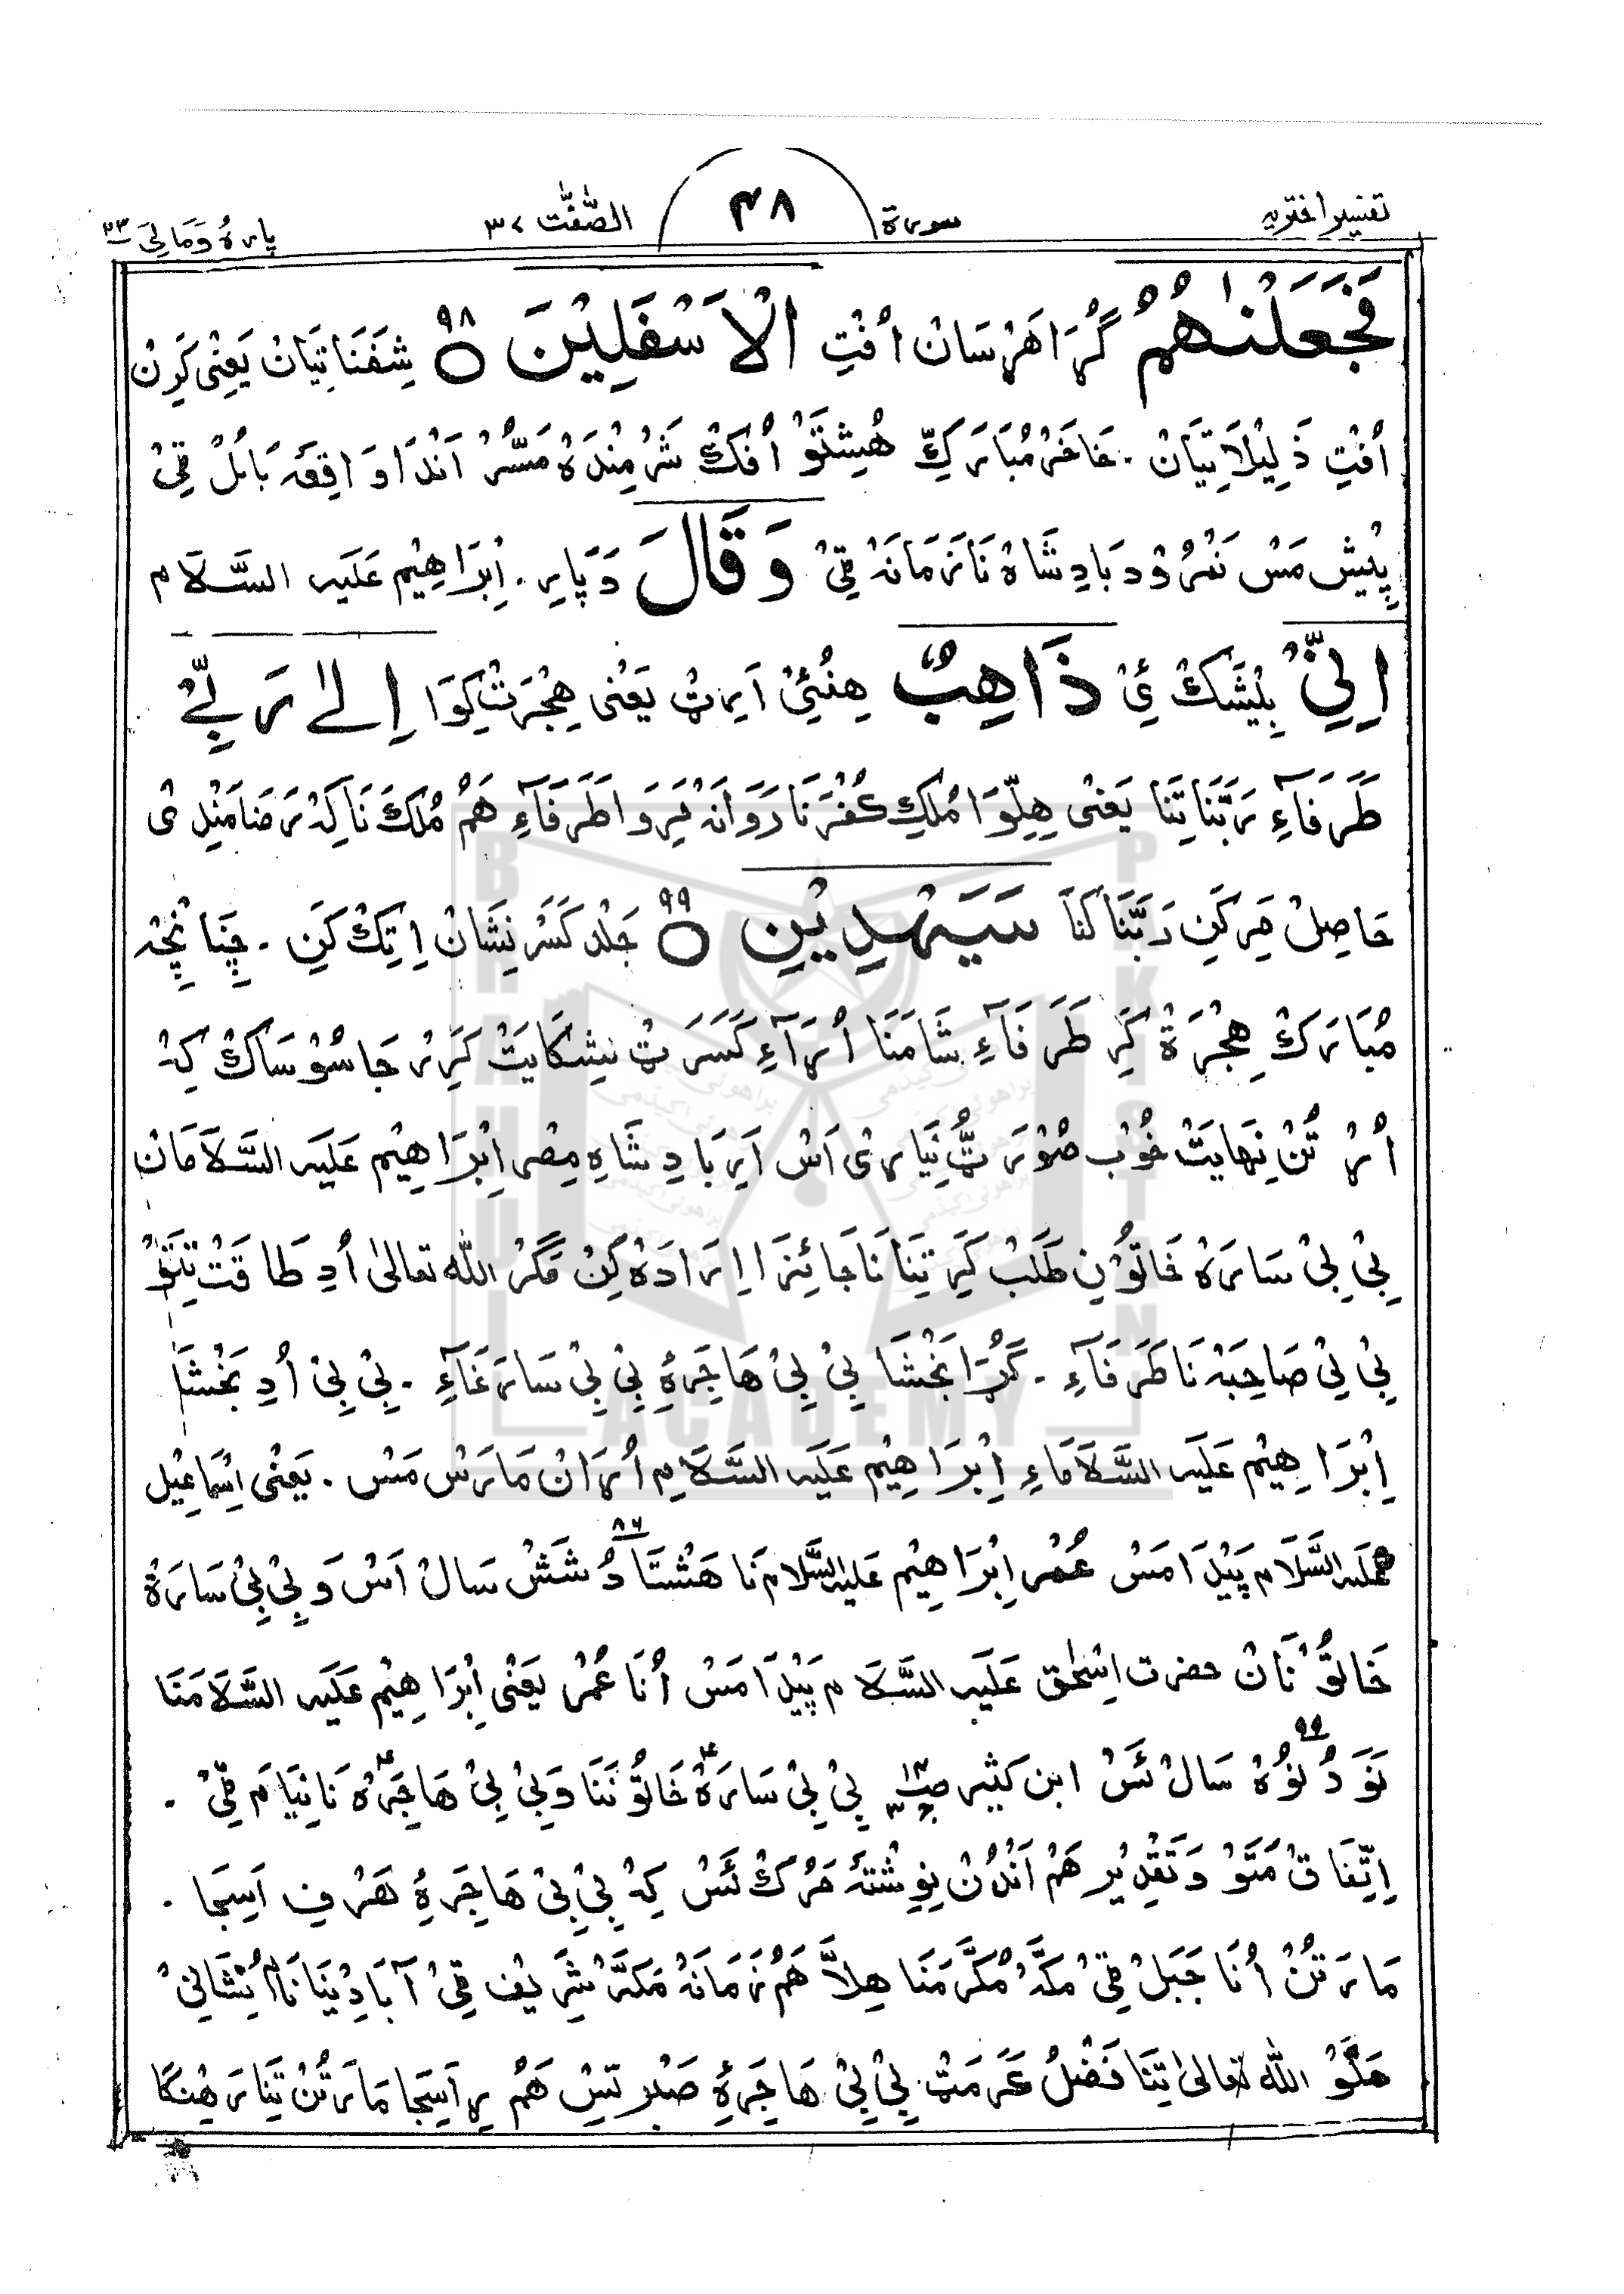 تفسیر اختریہ سورة ۴۸ الصّٰفّٰت ۳۷ پارہُ وَمَالِیَ ۲۳
فَجَعَلْنٰهُمُ گُڑَا ھَرْسَانْ اُفْتِ الْاَسْفَلِیْنَ ۹۸ شِفَنَاتِیَانْ یَعْنِی کَرِنْ
اُفْتِ ذَلِیْلَاتِیَانْ ۔ خَاخَرْ مُبَارَکِّ ھُیشْتَوْ اُفْکْ شَرْمِنْدَہْ مَسُّرْ اَنْدَا وَاقِعَہ بَابُلْ قِیْ
پِیْش مَسْ نَمْرُوْد بَادِشَاہْ نَا زَمَانَہ قِیْ وَقَالَ وَپَارِ ۔ اِبْرَاهِیْم عَلَیہ السَّلَام
اِنِّیْ بِیْشَکْ ئِیْ ذَاهِبٌ هِنُئِیْ اَرِیٹْ یَعْنی هِجْرَتْ کِوَا اِلٰے رَبِّیْ
طَرَفَاءِ رَبَّنَا تِنَا یَعْنی هِلِّوَا مُلْکِ کُفْرَنَا رَوَانَہْ مَرِوَا طَرَفَاءِ هَمْ مُلْکَ نَا کِہْ رَضَامَنْدِی
حَاصِلْ مَرِ کَنِ رَبَّنَا کَنَا سَیَهْدِیْنِ ۹۹ جَلْد کَسَرْ نِشَانْ اِتِکْ کَنِ ۔ چُنَانْچِہ
مُبَارَکْ هِجْرَةْ کَرِ طَرَفَاءِ شَامَنَا اُرَآءِ کَسَرَ ٹْ شِکَایَتْ کَرِرْ جَاسُوْسَاکْ کِہْ
اُرْ تُنْ نِهَایَتْ خُوْب صُوْرَتُّ نِیَارِیْ اَسْ اَرِ بَادِشَاہِ مِصْر اِبْرَاهِیْم عَلَیہ السَّلَامَانْ
بِیْ بِیْ سَارَہْ خَاتُوْنِ طَلَبْ کَرِ تِنَا نَاجَائِزَا اِرَادَہْ کِنْ مَگَرْ اللّٰہ تعالیٰ اُدِ طَاقَتْ تِتَوْ
بِیْ بِیْ صَاحِبَہْ نَا طَرَفَآءِ ۔ گُڑَا بَخْشَا بِیْ بِیْ هَاجَرَہِ بِیْ بِیْ سَارَغَآءِ ۔ بِیْ بِیْ اُدِ بَخْشَا
اِبْرَاهِیْم عَلَیہ السَّلَامَاءِ اِبْرَاهِیْم عَلَیہ السَّلَامِ اُرَانْ مَارَسْ مَسْ ۔ یَعْنی اِسْمَاعِیْل
عَلَیہ السَّلَام پَیْدَا مَسْ عُمْر اِبْرَاهِیْم عَلَیہ السَّلَام نَا هَشْتَادُ شَشْ ۸۶ سَالْ اَسْ وَ بِیْ بِیْ سَارَةْ
خَاتُوْنَانْ حضرت اِسْحٰق عَلَیہ السَّلَام پَیْدَا مَسْ اُنَا عُمْر یَعْنی اِبْرَاهِیْم عَلَیہ السَّلَامَنَا
نَوَدُ نُوْہْ ۹۹ سَالْ ئَسْ ابن کثیر بِیْ بِیْ سَارَہْ خَاتُوْنَنَا وَ بِیْ بِیْ هَاجَرَہْ نَا نِیَامَ قِیْ ۔
اِتِّفَاقْ مَتَوْ وَ تَقْدِیْر هَمْ اَنْدُنْ نِوِشْتَہ مَرُکْ ئَسْ کِہْ بِیْ بِیْ هَاجَرَہِ هَرْفِ اَسِجَا ۔
مَارَتُنْ اُنَا جَبَلْ قِیْ مَکَّہْ مُکَرَّمَنَا هِلَّا هَمْ زَمَانَہْ مَکَّہْ شَرِیْف قِیْ آبَادْنِیَا نَامُ نِشَانِیْ
هَلَّوْ اللّٰہ تعالیٰ تِنَا فَضْلُ رَحَمَتْ بِیْ بِیْ هَاجَرَہِ صَبْر تِسْ هَمْ رِاَسِجَا مَارَتُنْ تِنَا رَهِنْگَا